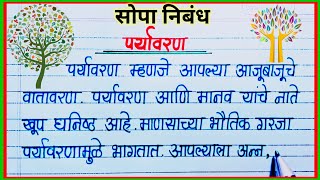 सोपा निबंध
पर्यावरण
पर्यावरण म्हणजे आपल्या आजूबाजूचे
वातावरण. पर्यावरण आणि मानव यांचे नाते
खूप घनिष्ठ आहे. माणसाच्या भौतिक गरजा
पर्यावरणामुळे भागतात. आपल्याला अन्न,